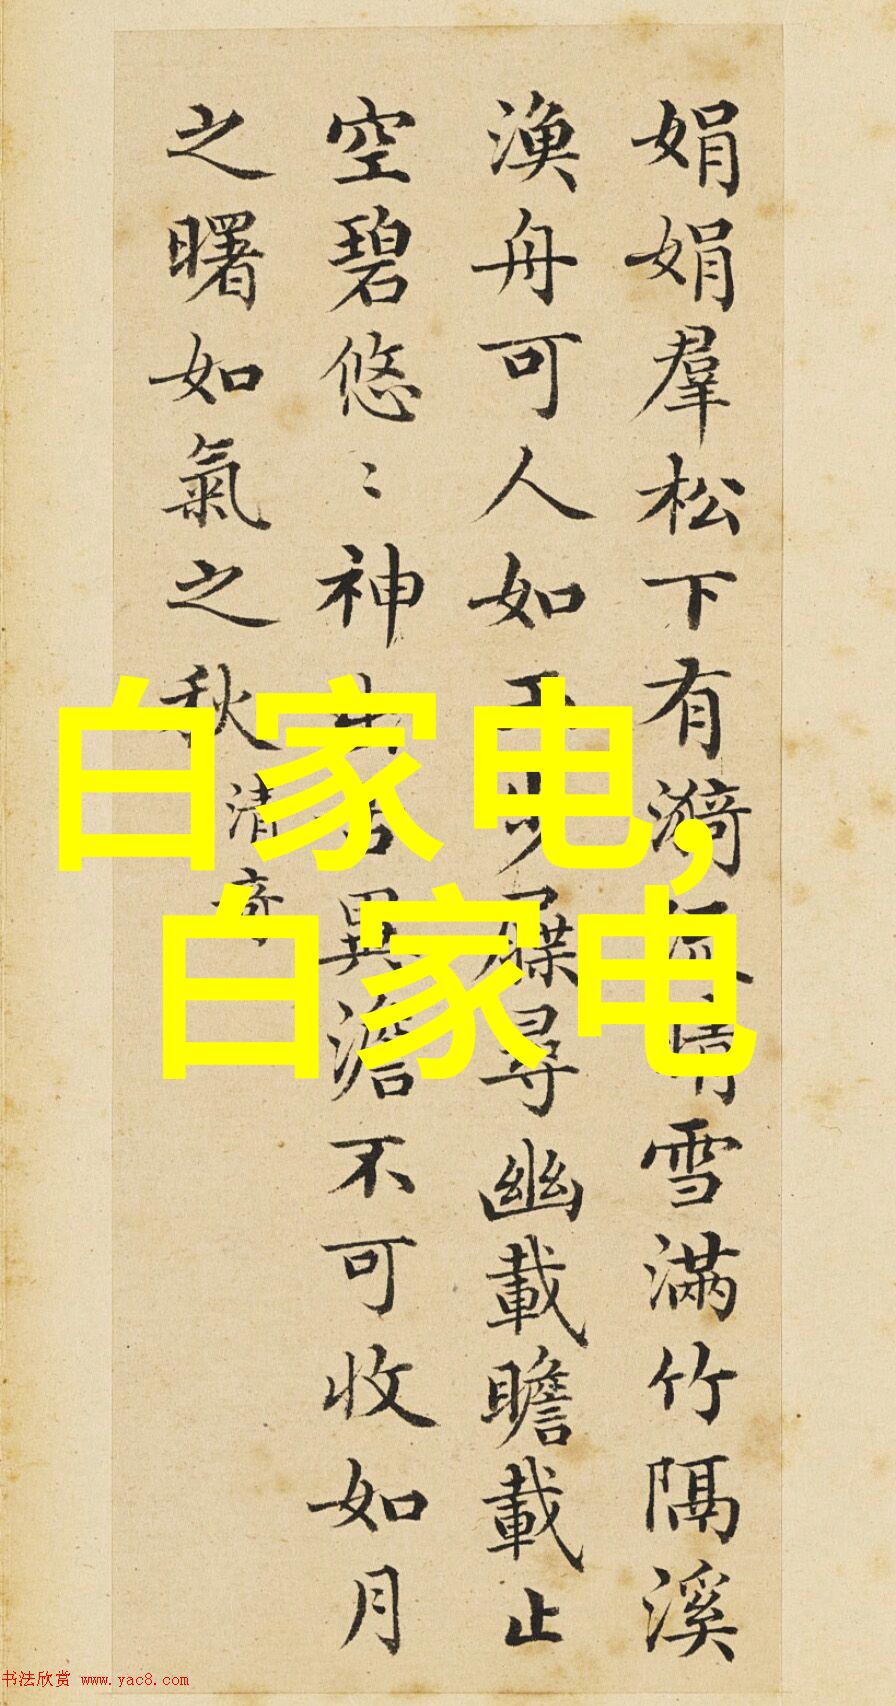 娟娟羣松下有漪雪滿竹隔溪
漁舟可人如屧尋幽載瞻載止
空碧悠〻神異澹不可收如月
之曙如氣之秋
清奇
白家电,
白家电
书法欣赏 www.yac8.com